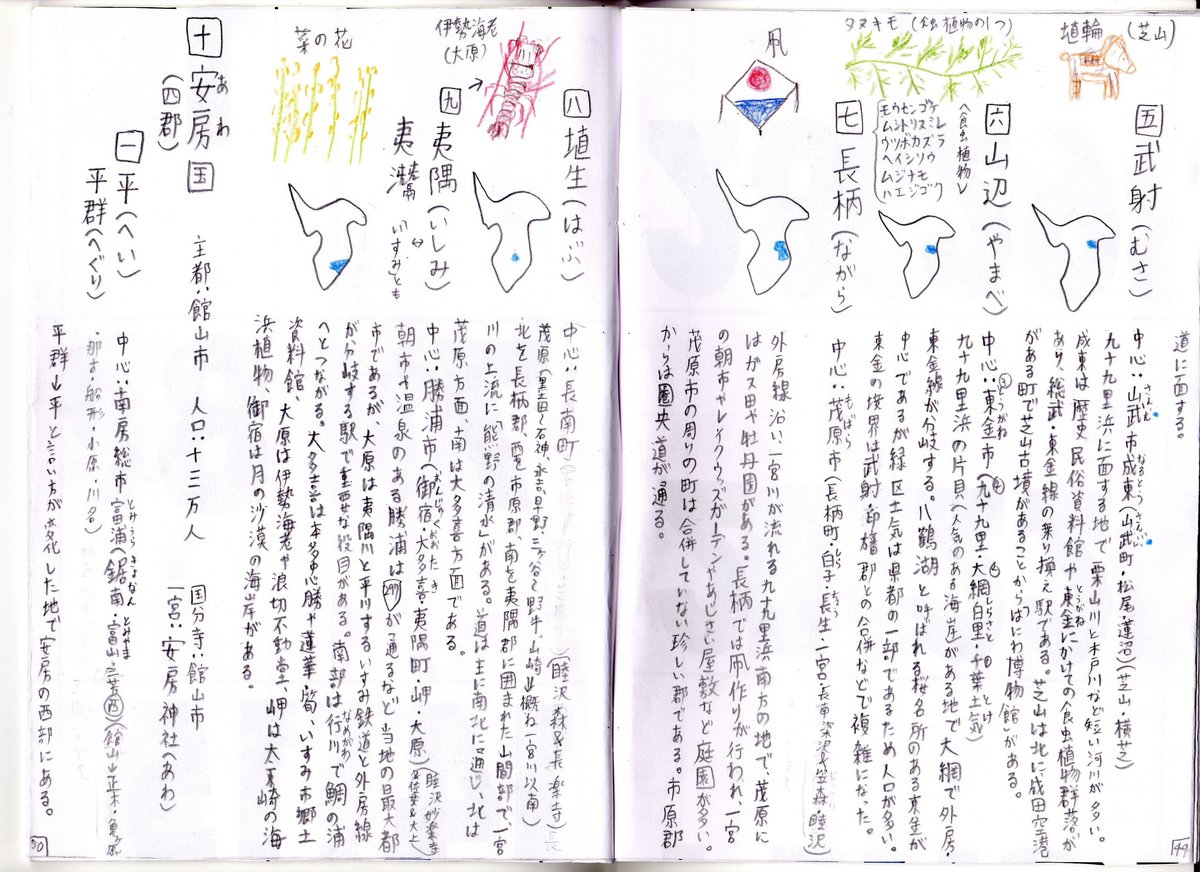 道に面する。
埴輪（芝山）
五 武射（むさ）
中心：山武市成東（山武町・松尾・蓮沼）（芝山・横芝）
九十九里浜に面する地で栗山川と木戸川など短い河川が多い。
成東は歴史民俗資料館や東金にかけての食虫植物群落が
あり、総武・東金線の乗り換え駅である。芝山は北に成田空港
がある町で芝山古墳があることから「はにわ博物館」がある。
タヌキモ（食虫植物の1つ）
〈食虫植物〉
モウセンゴケ
ムシトリスミレ
ウツボカズラ
ヘイシソウ
ムジナモ
ハエジゴク
六 山辺（やまべ）
中心：東金市（九十九里・大網白里・千葉土気）
九十九里浜の片貝（人気のある海岸がある地で大網で外房・
東金線が分岐する。八鶴湖と呼ばれる桜名所のある東金が
中心であるが緑区土気は県都の一部であるため人口が多い。
東金の境界は武射・印旛郡との合併などで複雑になった。
凧
七 長柄（ながら）
中心：茂原市（長柄町・白子・長生・一宮・
外房線沿い、一宮川が流れる九十九里浜南方の地で、茂原に
はガス田や牡丹園がある。長柄では凧作りが行われ、一宮
の朝市やレイクウッズガーデンやあじさい屋敷など庭園が多い。
茂原市の周りの町は合併していない珍しい郡である。市原郡
からは圏央道が通る。
八 埴生（はぶ）
中心：長南町（睦沢森&長楽寺）
北を長柄郡、西を市原郡、南を夷隅郡に囲まれた山間部で、一宮
川の上流に「熊野の清水」がある。道は主に南北に通じ、北は
茂原方面、南は大多喜方面である。
伊勢海老（大原）
九 夷隅（いしみ）
夷灊 いすみとも
中心：勝浦市（御宿・大多喜・夷隅町・岬・大原）
朝市や温泉のある勝浦は297が通るなど当地の最大都
市であるが、大原は夷隅川と平行するいすみ鉄道と外房線
が分岐する駅で重要な役目がある。南部は行川で鯛の浦
へとつながる。大多喜は本多忠勝や蓮華
資料館、大原は伊勢海老や浪切不動堂、岬は太東崎の海
浜植物、御宿は月の沙漠の海岸がある。
菜の花
十 安房国
（四郡）
主都：館山市 人口：十三万人
国分寺：館山市
一宮：安房神社（あわ）
一 平（へい）
平群（へぐり）
中心：南房総市富浦（鋸南・富山・三芳西）
・那古・船形・小原・川名）
平群→平と言い方が変化した地で安房の西部にある。
50
49